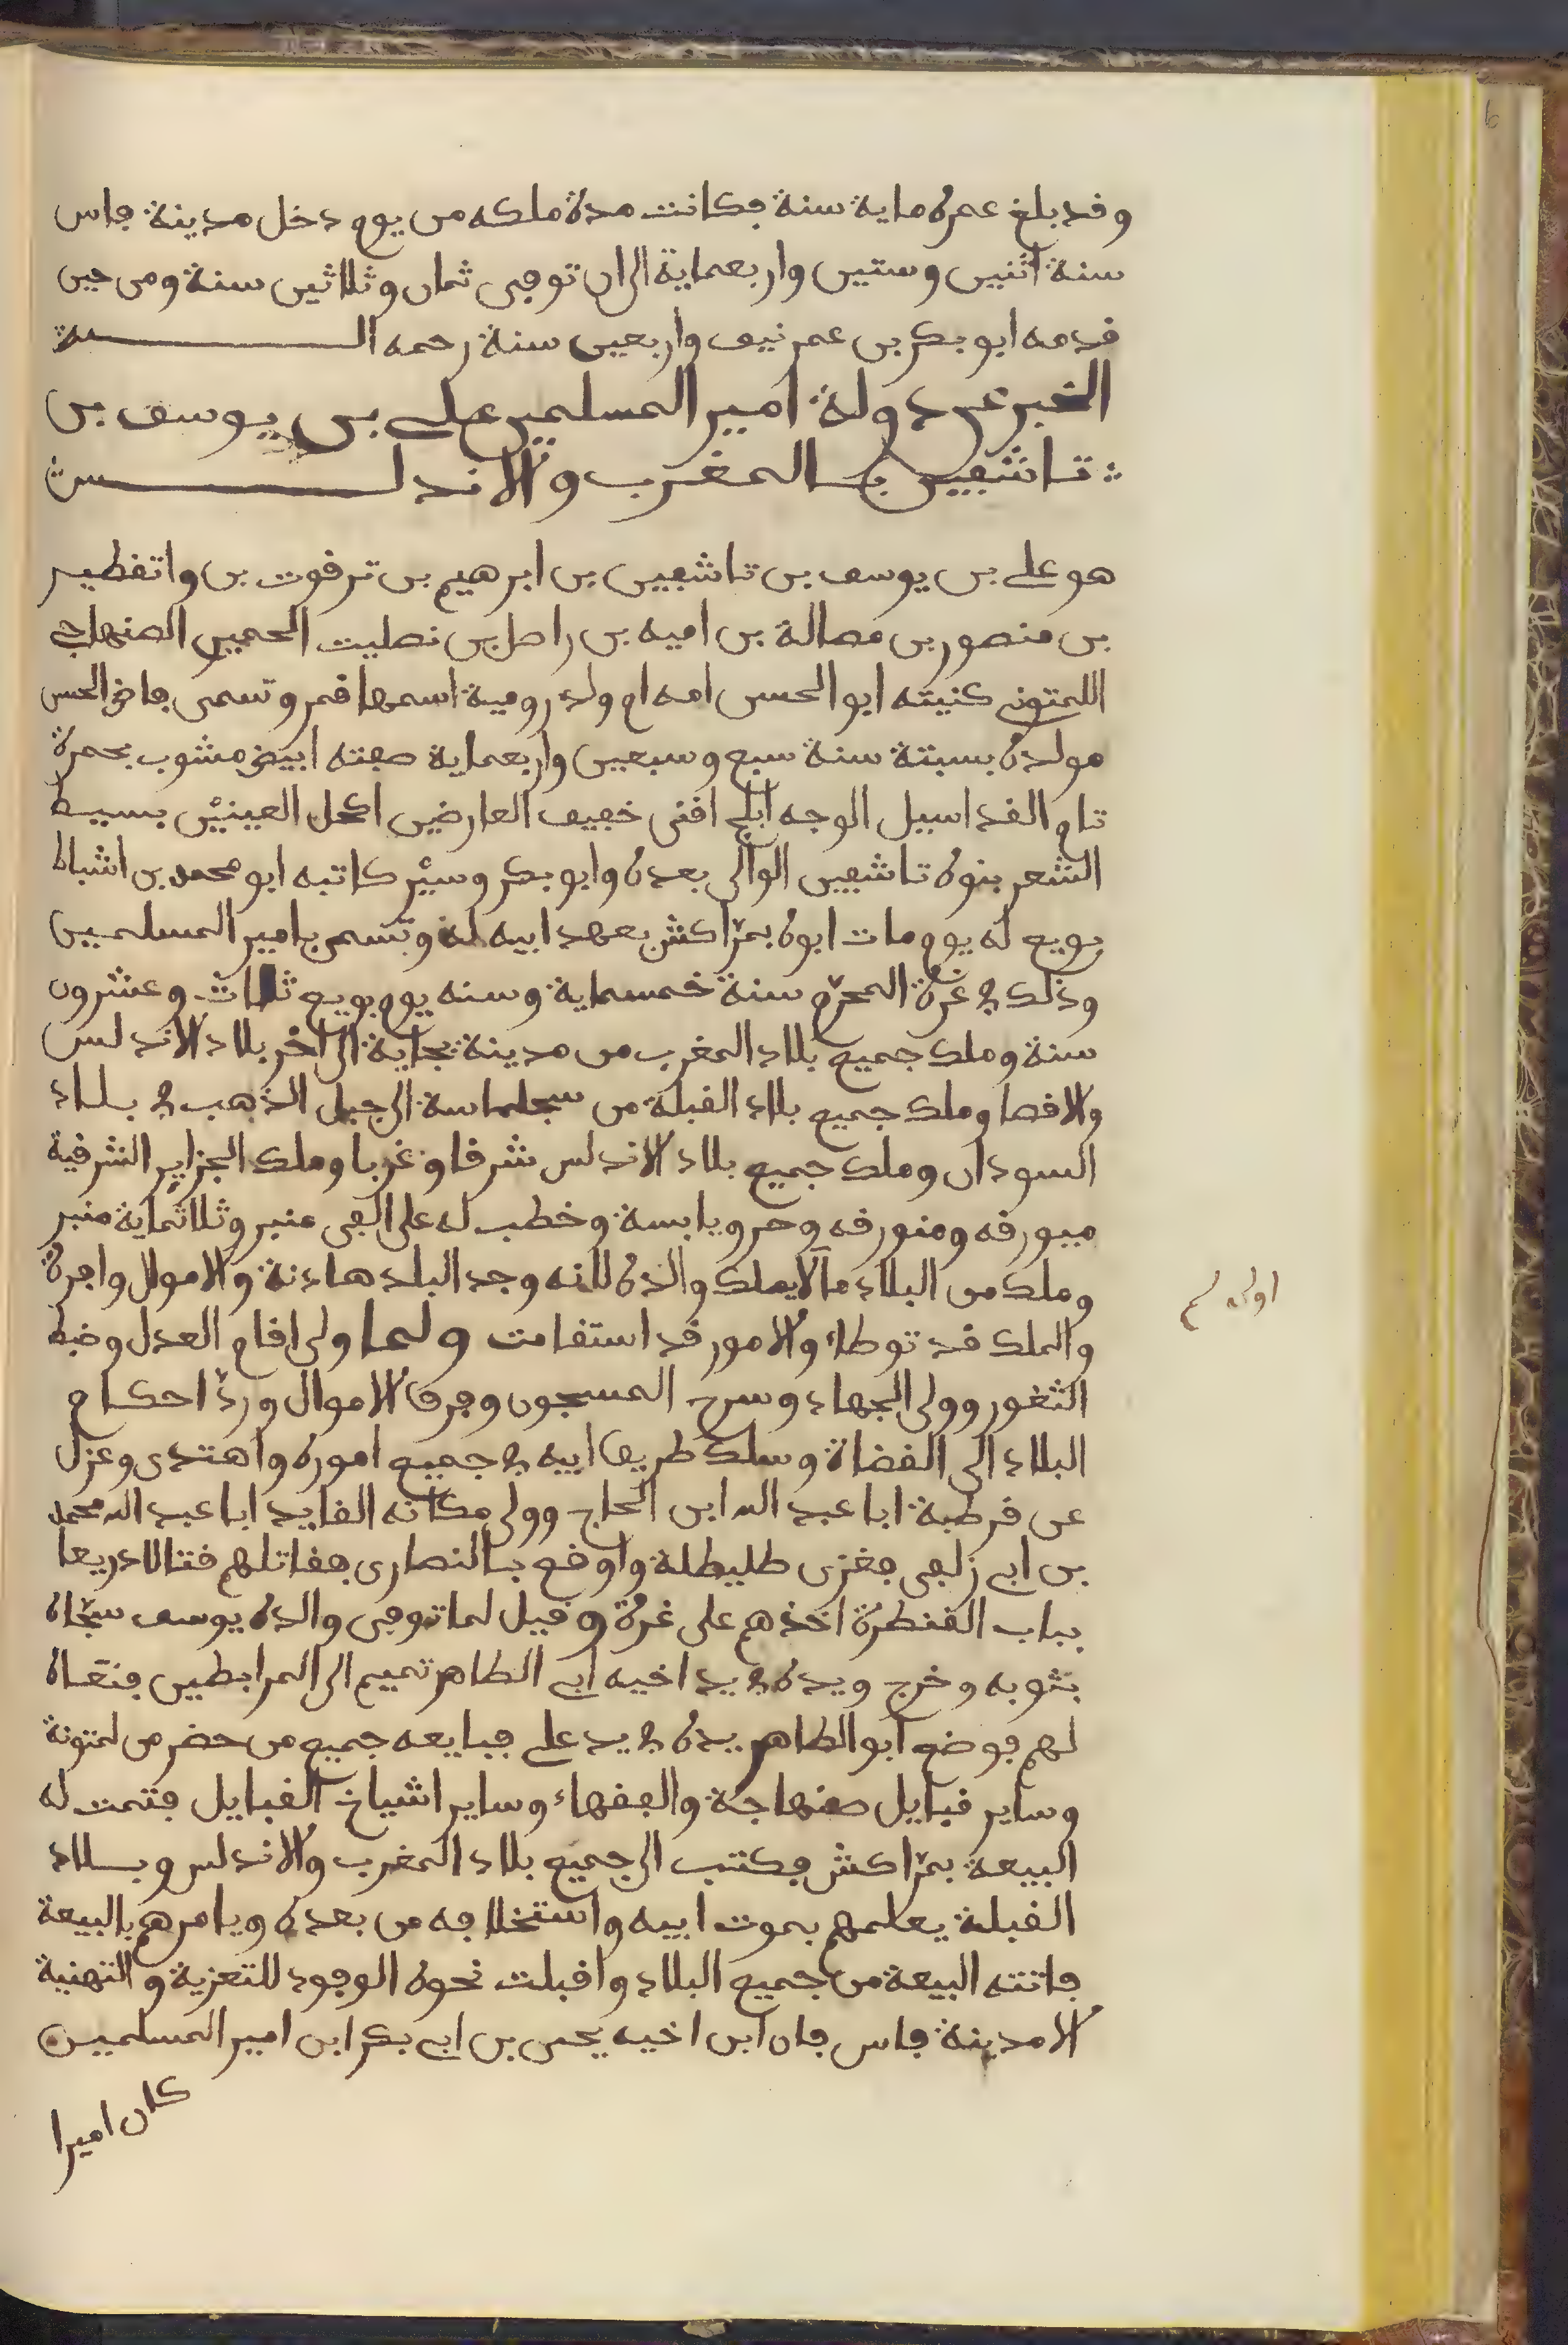 وقد بلغ عمره ماية سنة فكانت مدة ملكه من يوم دخل مدينة فاس
سنة اثنين وستين واربعماية الى ان توفى ثمان وثلاثين سنة ومن حين
قدمه ابو بكر بن عمر نيف واربعين سنة رحمه اللــه
الخبر عن دولة امير المسلمين على بن يوسف بن
تاشفين بالمغرب والاندلــس
هو على بن يوسف بن تاشفين بن ابرهيم بن ترفوت بن واتقطير
بن منصور بن مصالة بن اميه بن راصل بن نصليت الحميرى الصنهاجى
اللمتونى كنيته ابو الحسن امه ام ولد رومية اسمها قمر وتسمى فاض الحسن
مولده بسبتة سنة سبع وسبعين واربعماية صفته ابيض مشوب بحمرة
تام القد اسيل الوجه ابلج اقنى خفيف العارضين اكحل العينين بسيط
الشعر بنوه تاشفين الوالى بعده وابو بكر وسير كاتبه ابو محمد بن اشباط
بويع له يوم مات ابوه بمراكش بعهد ابيه له وتسمى بامير المسلمين
وذلك فى غرة المحرم سنة خمسماية وسنه يوم بويع ثلاث وعشرون
سنة وملك جميع بلاد المغرب من مدينة بجاية الى اخر بلاد الاندلس
والاقصا وملك جميع بلاد القبلة من سجلماسة الى جبل الذهب فى بلاد
السودان وملك جميع بلاد الاندلس شرقا وغربا وملك الجزاير الشرقية
ميورقه ومنورقه وحر ويابسة وخطب له على الفى منبر وثلاثماية منبر
وملك من البلاد ما لا يملك والده لانه وجد البلد هادنة والاموال وافرة
والملك قد توطاء والامور قد استقامت ولما ولى اقام العدل وضبط
الثغور وولى الجهاد وسرح المسجون وفرق الاموال ورد احكام
البلاد الى القضاة وسلك طريق ابيه فى جميع اموره واهتدى وعزل
عن قرطبة ابا عبد الله ابن الحاج وولى مكانه القايد ابا عبد الله محمد
بن ابى زلفى فغزى طليطلة واوقع بالنصارى فقاتلهم قتالا ذريعا
بباب القنطرة اخذهم على غرة وقيل لما توفى والده يوسف سجاه
بثوبه وخرج ويده فى يد اخيه ابى الطاهر تميم الى المرابطين فنعاه
لهم فوضع ابو الطاهر يده فى يد على فبايعه جميع من حضر من لمتونة
وساير قبايل صنهاجة والفقهاء وساير اشياخ القبايل فتمت له
البيعة بمراكش فكتب الى جميع بلاد المغرب والاندلس وبلاد
القبلة يعلمهم بموت ابيه واستخلافه من بعده ويامرهم بالبيعة
فاتته البيعة من جميع البلاد واقبلت نحوه الوفود للتعزية والتهنية
الا مدينة فاس فان ابن اخيه يحيى بن ابى بكر ابن امير المسلمين
كان اميرا